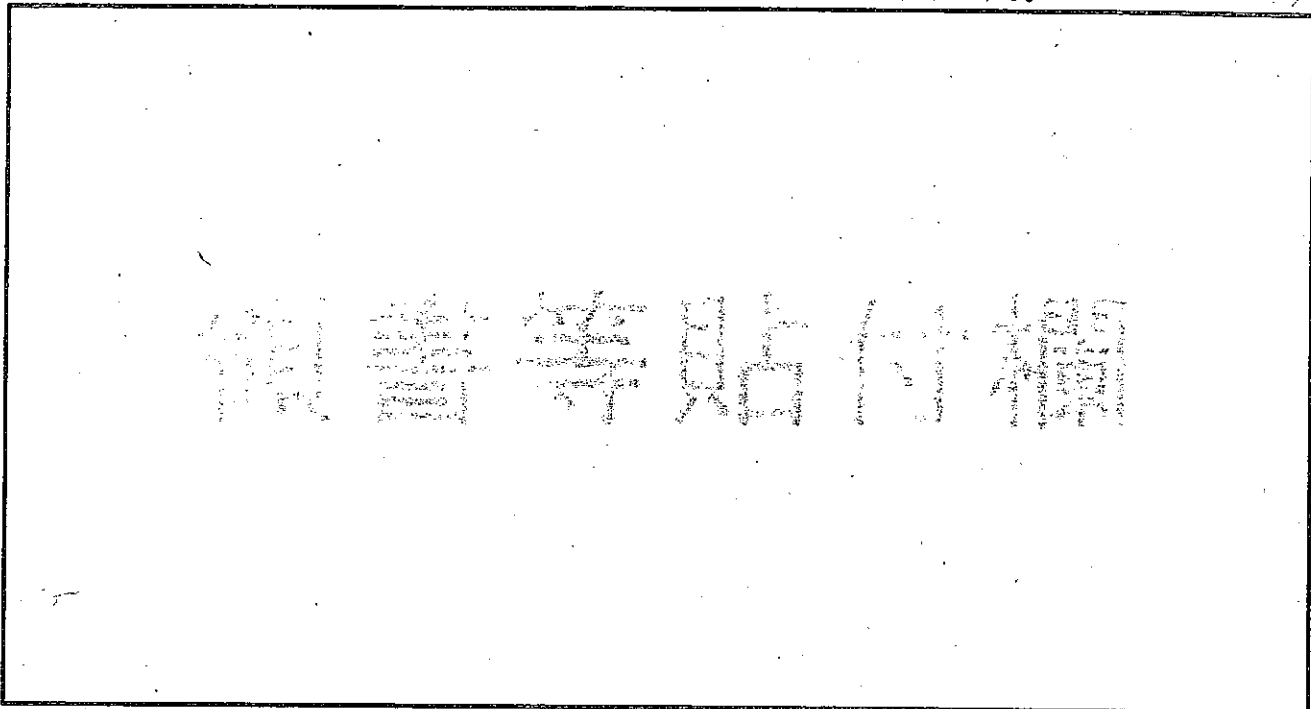 領収書等貼付欄